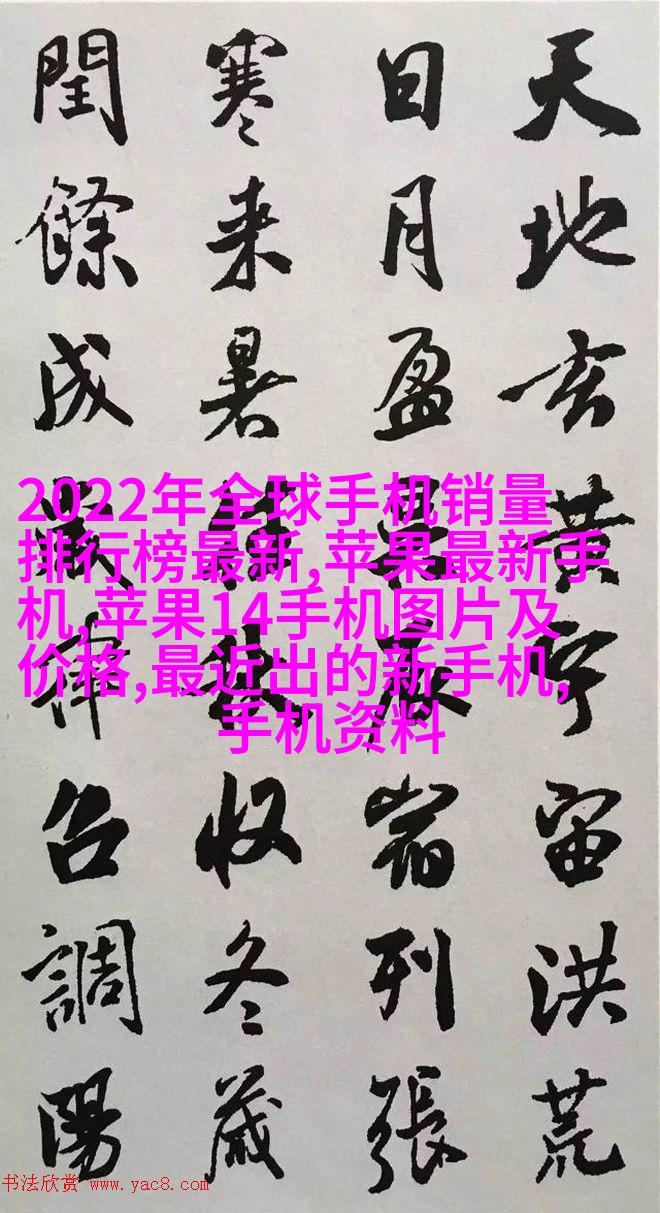 天地玄黄宇宙洪荒
日月盈昃辰宿列張
寒来暑往秋收冬蔵
閏餘成歲律召調陽
2022年全球手机销量
排行榜最新,苹果最新手
机,苹果14手机图片及
价格,最近出的新手机,
手机资料
书法欣赏 www.yac8.com